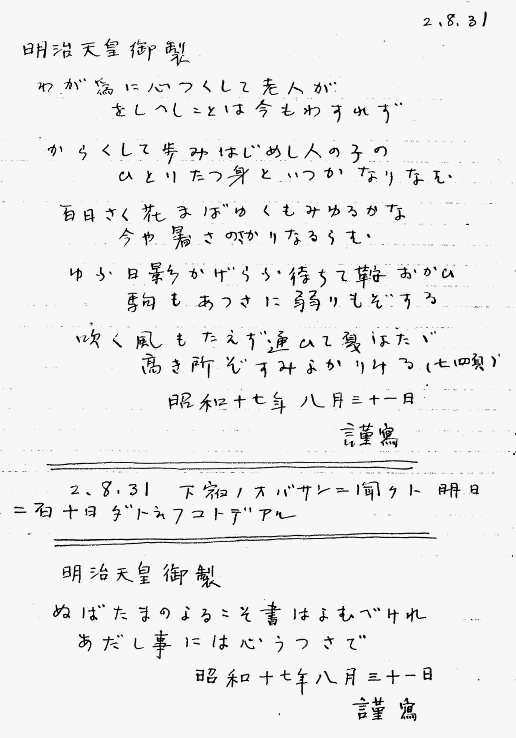 2.8.31
明治天皇御製
わが為に心つくして老人が
をしへしことは今もわすれず
からくして歩みはじめし人の子の
ひとりたつ身といつかなりなむ
百日さく花まばゆくもみゆるかな
今や暑さのさかりなるらむ
ゆふ日影かげらふ待ちて鞍おかひ
駒もあつさに弱りもぞする
吹く風もたえず通ひて夏はたゞ
高き所ぞすみよかりける(七四頁)
昭和十七年八月三十一日
謹寫
2.8.31 下宿ノオバサンニ聞クト明日
二百十日ダト云フコトデアル
明治天皇御製
ぬばたまのよるこそ書はよむべけれ
あだし事には心うつさで
昭和十七年八月三十一日
謹寫